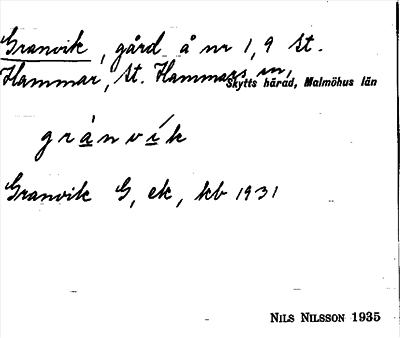 Granvik, gård å nr 1,9 St.
Hammar, St. Hammars sn,
Skytts härad, Malmöhus län
gránvík
Granvik G, ek, kb 1931
NILS NILSSON 1935